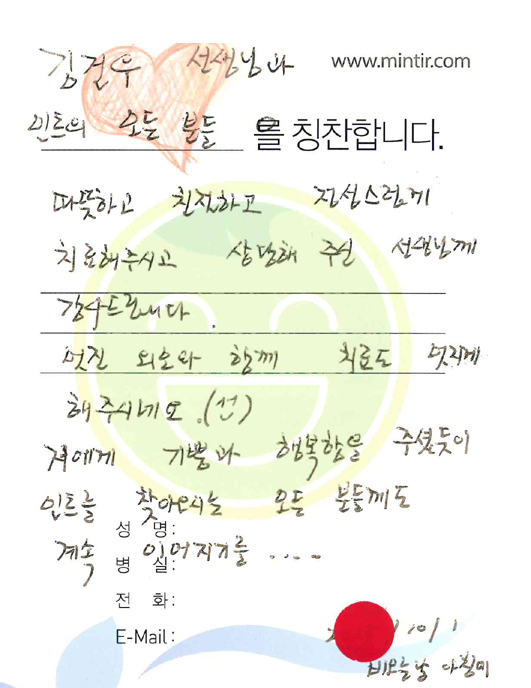 김건우 선생님과
www.mintir.com
민트의 모든 분들 을 칭찬합니다.
따뜻하고 친절하고 정성스럽게
치료해주시고 상담해 주신 선생님께
감사드립니다.
멋진 외모와 함께 치료도 멋지게
해주시네요.(선)
저에게 기쁨과 행복함을 주셨듯이
민트를 찾아오시는 모든 분들께도
성 명:
계속 이어지기를 ....
병 실:
전 화:
E-Mail:
10/1
비오는날 아침에